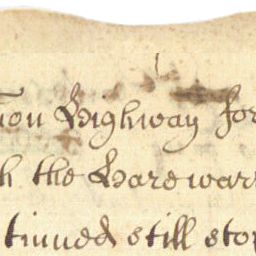 mon Highway for
h the Hare warr
tinued still stop